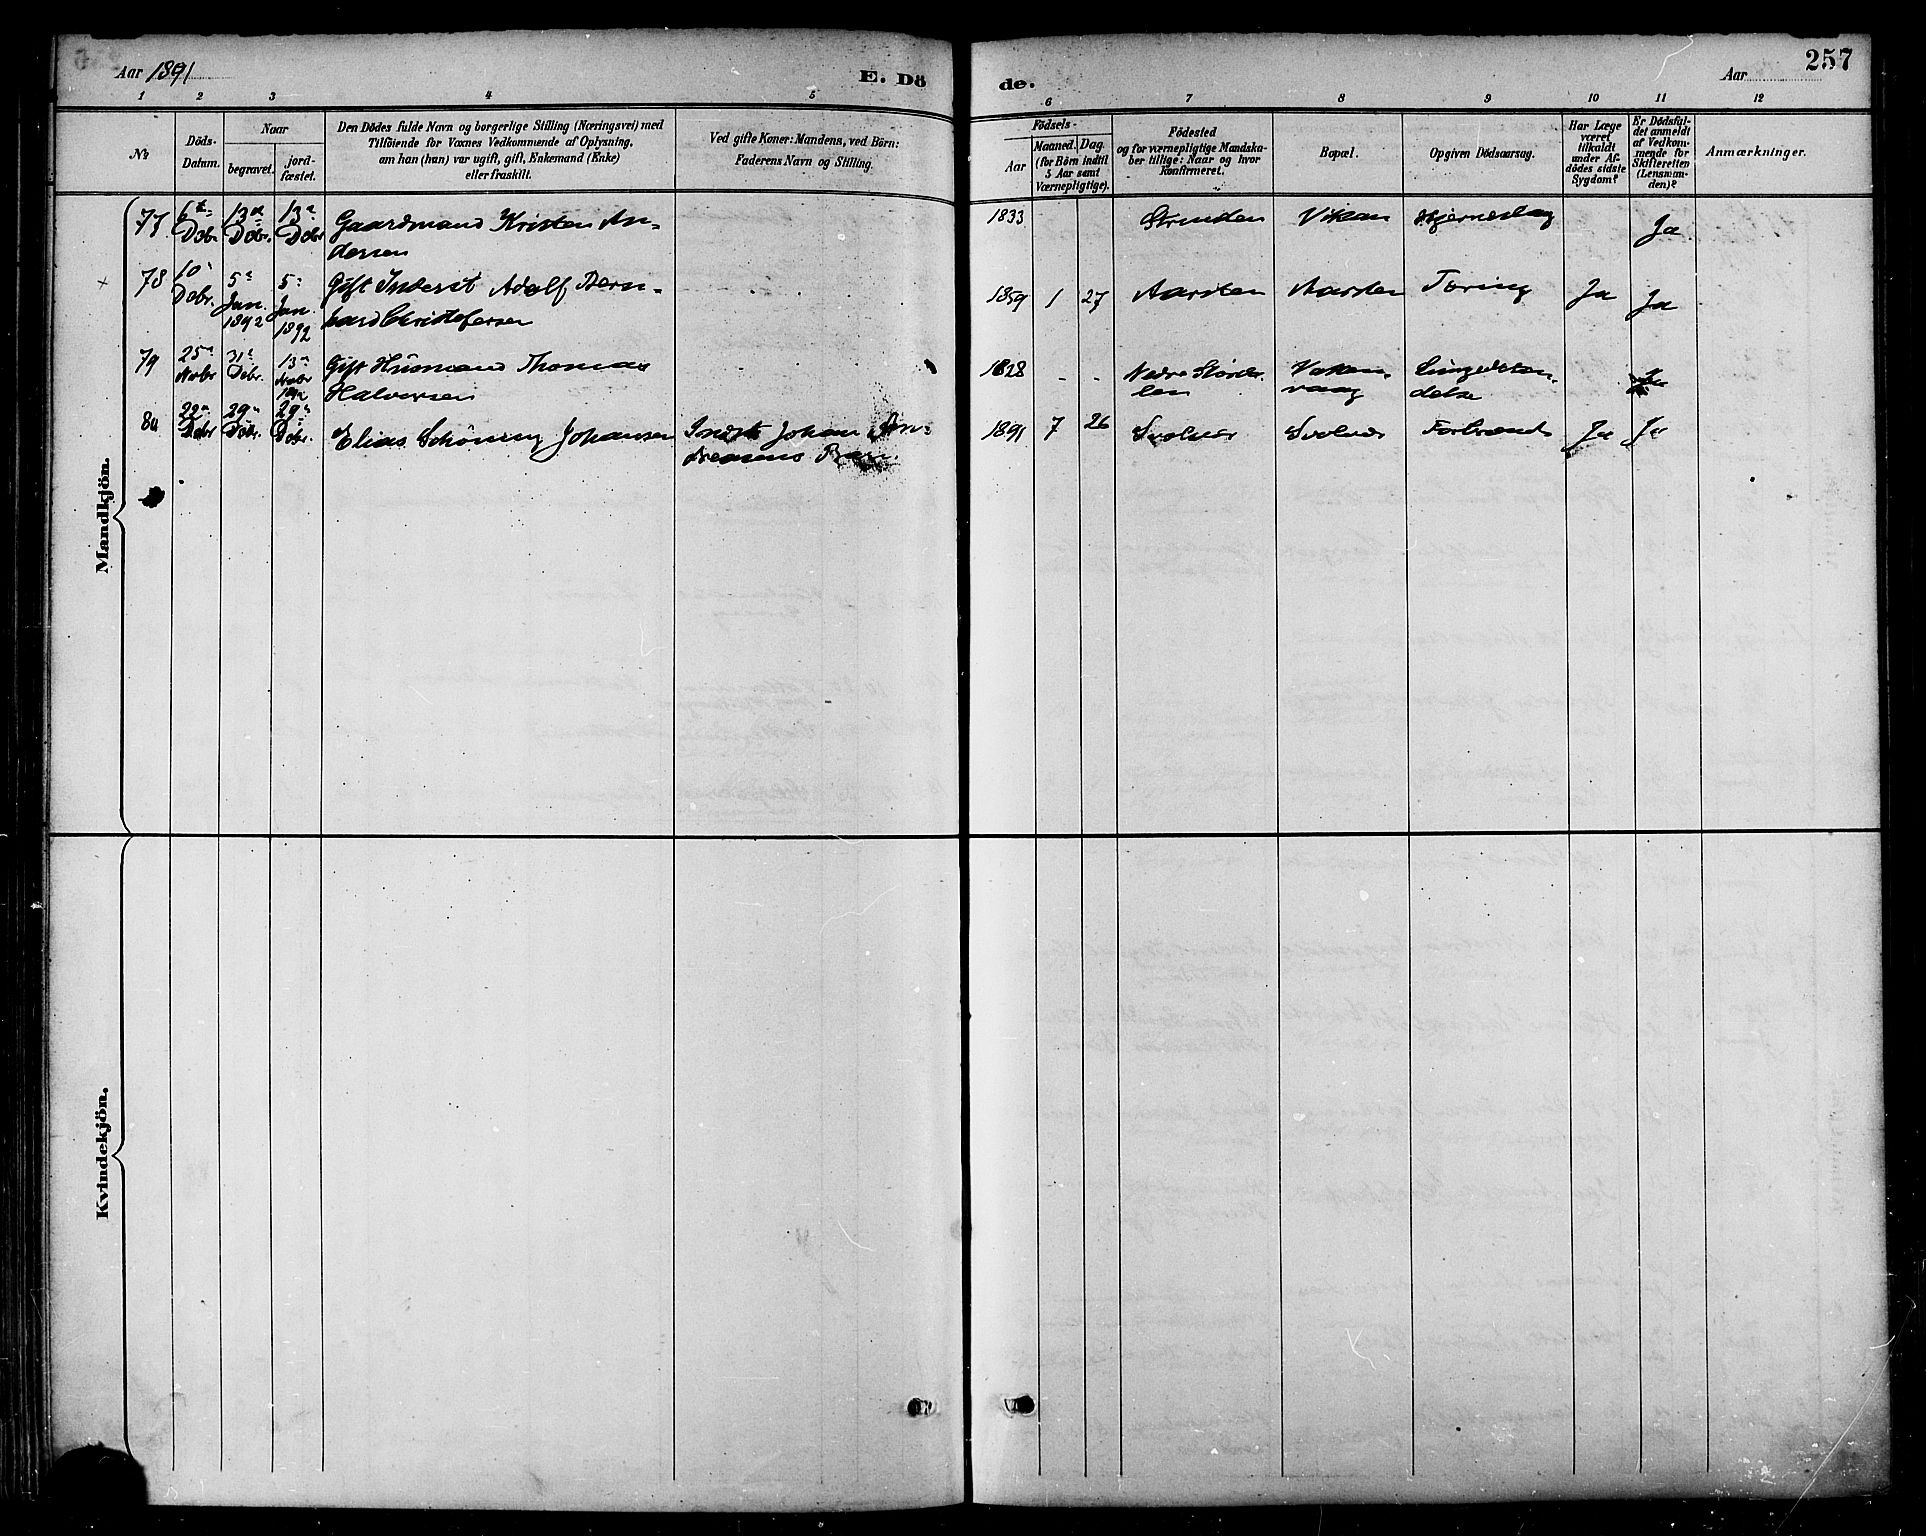 Aar 1891
E. Dö
de.
Aar
257
1 2 3 4 5 6 7 8 9 10 11 12
No
Döds-
Datum.
Naar
begravet.
jord-
fæstet.
Den Dödes fulde Navn og borgerlige Stilling (Næringsvei) med
Tilföiende for Voxnes Vedkommende af Oplysning,
om han (hun) var ugift, gift, Enkemand (Enke)
eller fraskilt.
Ved gifte Koner: Mandens, ved Börn:
Faderens Navn og Stilling.
Födsels-
Aar
Maaned. Dag.
(for Börn indtil
5 Aar samt
Værnepligtige).
Födested
og for værnepligtige Mandska-
ber tillige: Naar og hvor
konfirmeret.
Bopæl.
Opgiven Dödsaarsag.
Har Læge
været
tilkaldt
under Af-
dödes sidste
Sygdom?
Er Dödsfal-
det anmeldt
af Vedkom-
mende for
Skifteretten
(Lensman-
den)?
Anmærkninger.
Mandkjön.
77 Debr. 13de Debr. 13de Debr Gaardmand Kristen An-
dersen
1833 Strinden Vikan Hjerneslag Ja
78 10 Debr. 5 Jan. 1892 5 Jan. 1892 Gift Inderst Adolf Bern-
hard Christofersen
1859 1 27 Aarsten Aarsten Tæring Ja Ja
79 25 Novbr 31 Debr. 13 1892 Gift Husmand Thomas
Halvorsen
1828 - - Nedre Stördalen
80 22 Debr 29 Debr. 29 Debr. Elias Schöning Johansen
Inderst Johan An-
dreasens Barn.
1891 7 26 Svolvær Svolvær Forbrændt Ja Ja
Kvindekjön.